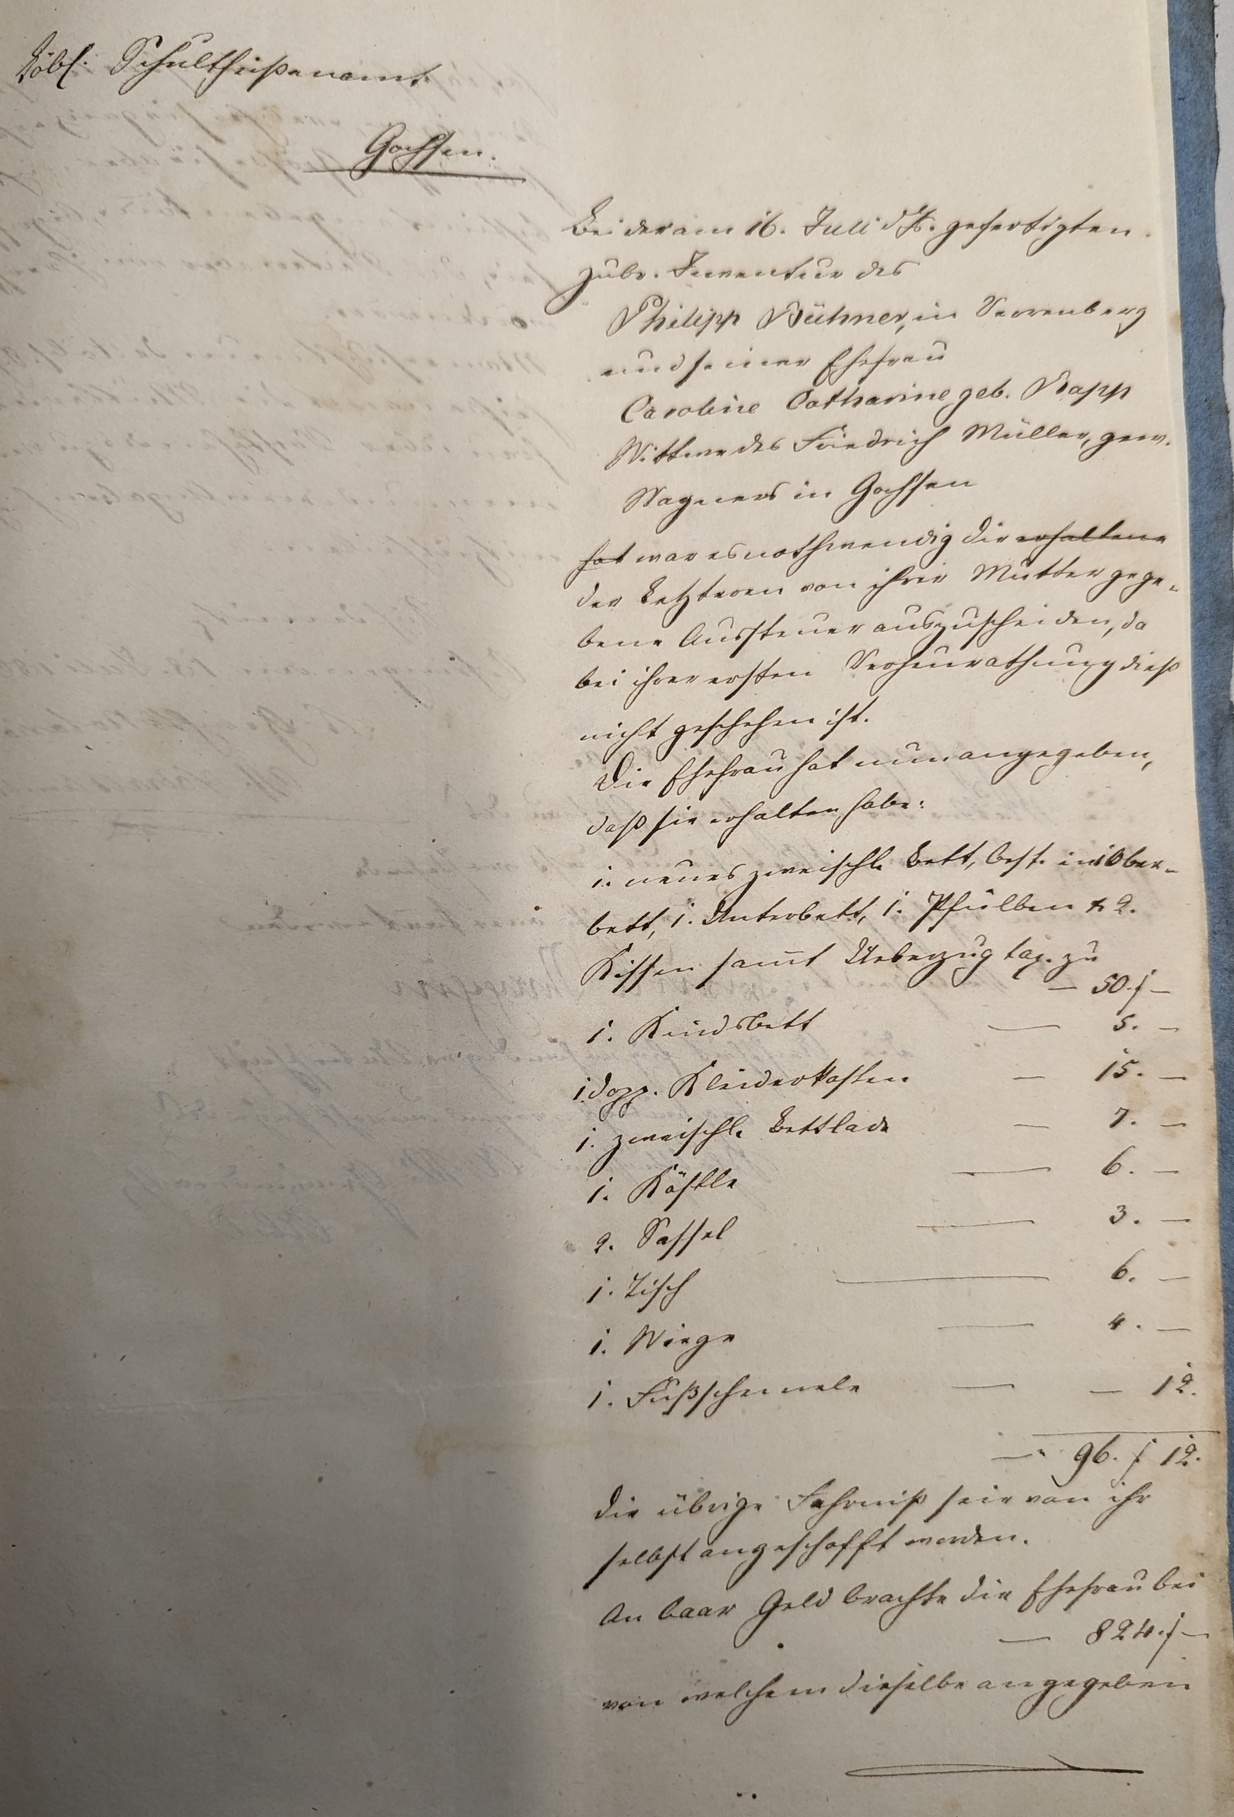 Löbl. Schultheißenamt
Gochsen.
Bei der am 16. Juli d. Js. gefertigten
Zubr. Inventur des
Philipp Bühner, in Verrenberg
und seiner Ehefrau
Caroline Catharine geb. Rapp
Wittwe des Friedrich Müller, gew.
Wagners in Gochsen
hat war es nothwendig die erhaltene
der Letzteren von ihrer Mutter gege-
bene Aussteuer auszuscheiden, da
bei ihrer ersten Verheurathung dieß
nicht geschehen ist.
Die Ehefrau hat nun angegeben,
daß sie erhalten habe:
1. neues zweischl. Bett, best. in 1 Ober-
bett, 1. Unterbett, 1. Pfülben & 2.
Kissen sammt Ueberzug tax. zu
— 50. f —
1. Kindsbett — 5. —
1 dopp. Kleiderkasten — 15. —
1. zweischl. Bettlade — 7. —
1. Köstle — 6. —
2. Sessel — 3. —
1. Tisch — 6. —
1. Wiege — 4. —
1. Fußschemele — — 12.
— 96. f 12.
die übrige Fahrniß seie von ihr
selbst angeschafft worden.
An baar Geld brachte die Ehefrau bei
— 824. f —
von welchem dieselbe angegeben